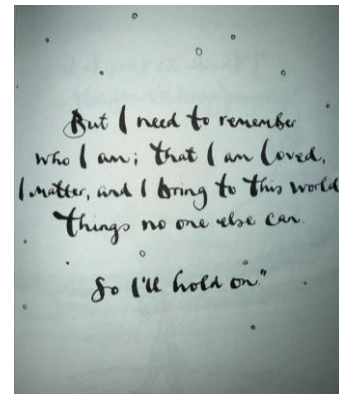 But I need to remember
who I am; that I am loved,
I matter, and I bring to this world
things no one else can.
So I'll hold on."